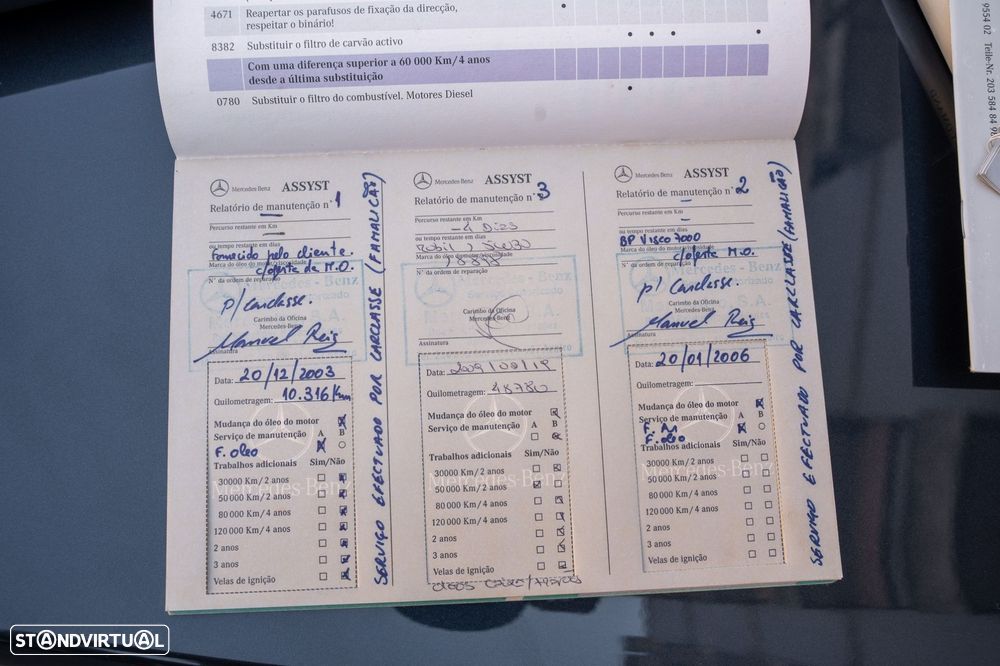 4671 Reapertar os parafusos de fixação da direcção,
respeitar o binário!
8382 Substituir o filtro de carvão activo
Com uma diferença superior a 60 000 Km/4 anos
desde a última substituição
0780 Substituir o filtro do combustível. Motores Diesel
9554 02 Teile-Nr. 203 584 84 98
Mercedes-Benz ASSYST
Relatório de manutenção nº 1
Percurso restante em Km
ou tempo restante em dias
Fornecido pelo cliente.
Marca do óleo do motor/viscosidade
c/oferta de M.O.
Nº da ordem de reparação
P/ Carclasse.
Carimbo da Oficina
Mercedes-Benz
Manuel Reis
Assinatura
Data: 20/12/2003
Quilometragem: 10.316 Km
Mudança do óleo do motor
Serviço de manutenção A B
F. oleo
Trabalhos adicionais Sim/Não
30000 Km/2 anos
50 000 Km/2 anos
80 000 Km/4 anos
120 000 Km/4 anos
2 anos
3 anos
Velas de ignição
SERVIÇO EFECTUADO POR CARCLASSE (FAMALICÃO)
Mercedes-Benz ASSYST
Relatório de manutenção nº 3
Percurso restante em Km
-4 Dias
ou tempo restante em dias
Marca do óleo do motor/viscosidade
Nº da ordem de reparação
Carimbo da Oficina
Mercedes-Benz
Assinatura
Data:
Quilometragem: 48780
Mudança do óleo do motor
Serviço de manutenção A B
Trabalhos adicionais Sim/Não
30000 Km/2 anos
50 000 Km/2 anos
80 000 Km/4 anos
120 000 Km/4 anos
2 anos
3 anos
Velas de ignição
Mercedes-Benz ASSYST
Relatório de manutenção nº 2
Percurso restante em Km
ou tempo restante em dias
BP Visco 7000
Marca do óleo do motor/viscosidade
c/oferta M.O.
Nº da ordem de reparação
P/ Carclasse.
Carimbo da Oficina
Mercedes-Benz
Manuel Reis
Assinatura
Data: 20/01/2006
Quilometragem:
Mudança do óleo do motor
Serviço de manutenção A B
F. oleo
Trabalhos adicionais Sim/Não
30000 Km/2 anos
50 000 Km/2 anos
80 000 Km/4 anos
120 000 Km/4 anos
2 anos
3 anos
Velas de ignição
SERVIÇO EFECTUADO POR CARCLASSE (FAMALICÃO)
STANDVIRTUAL